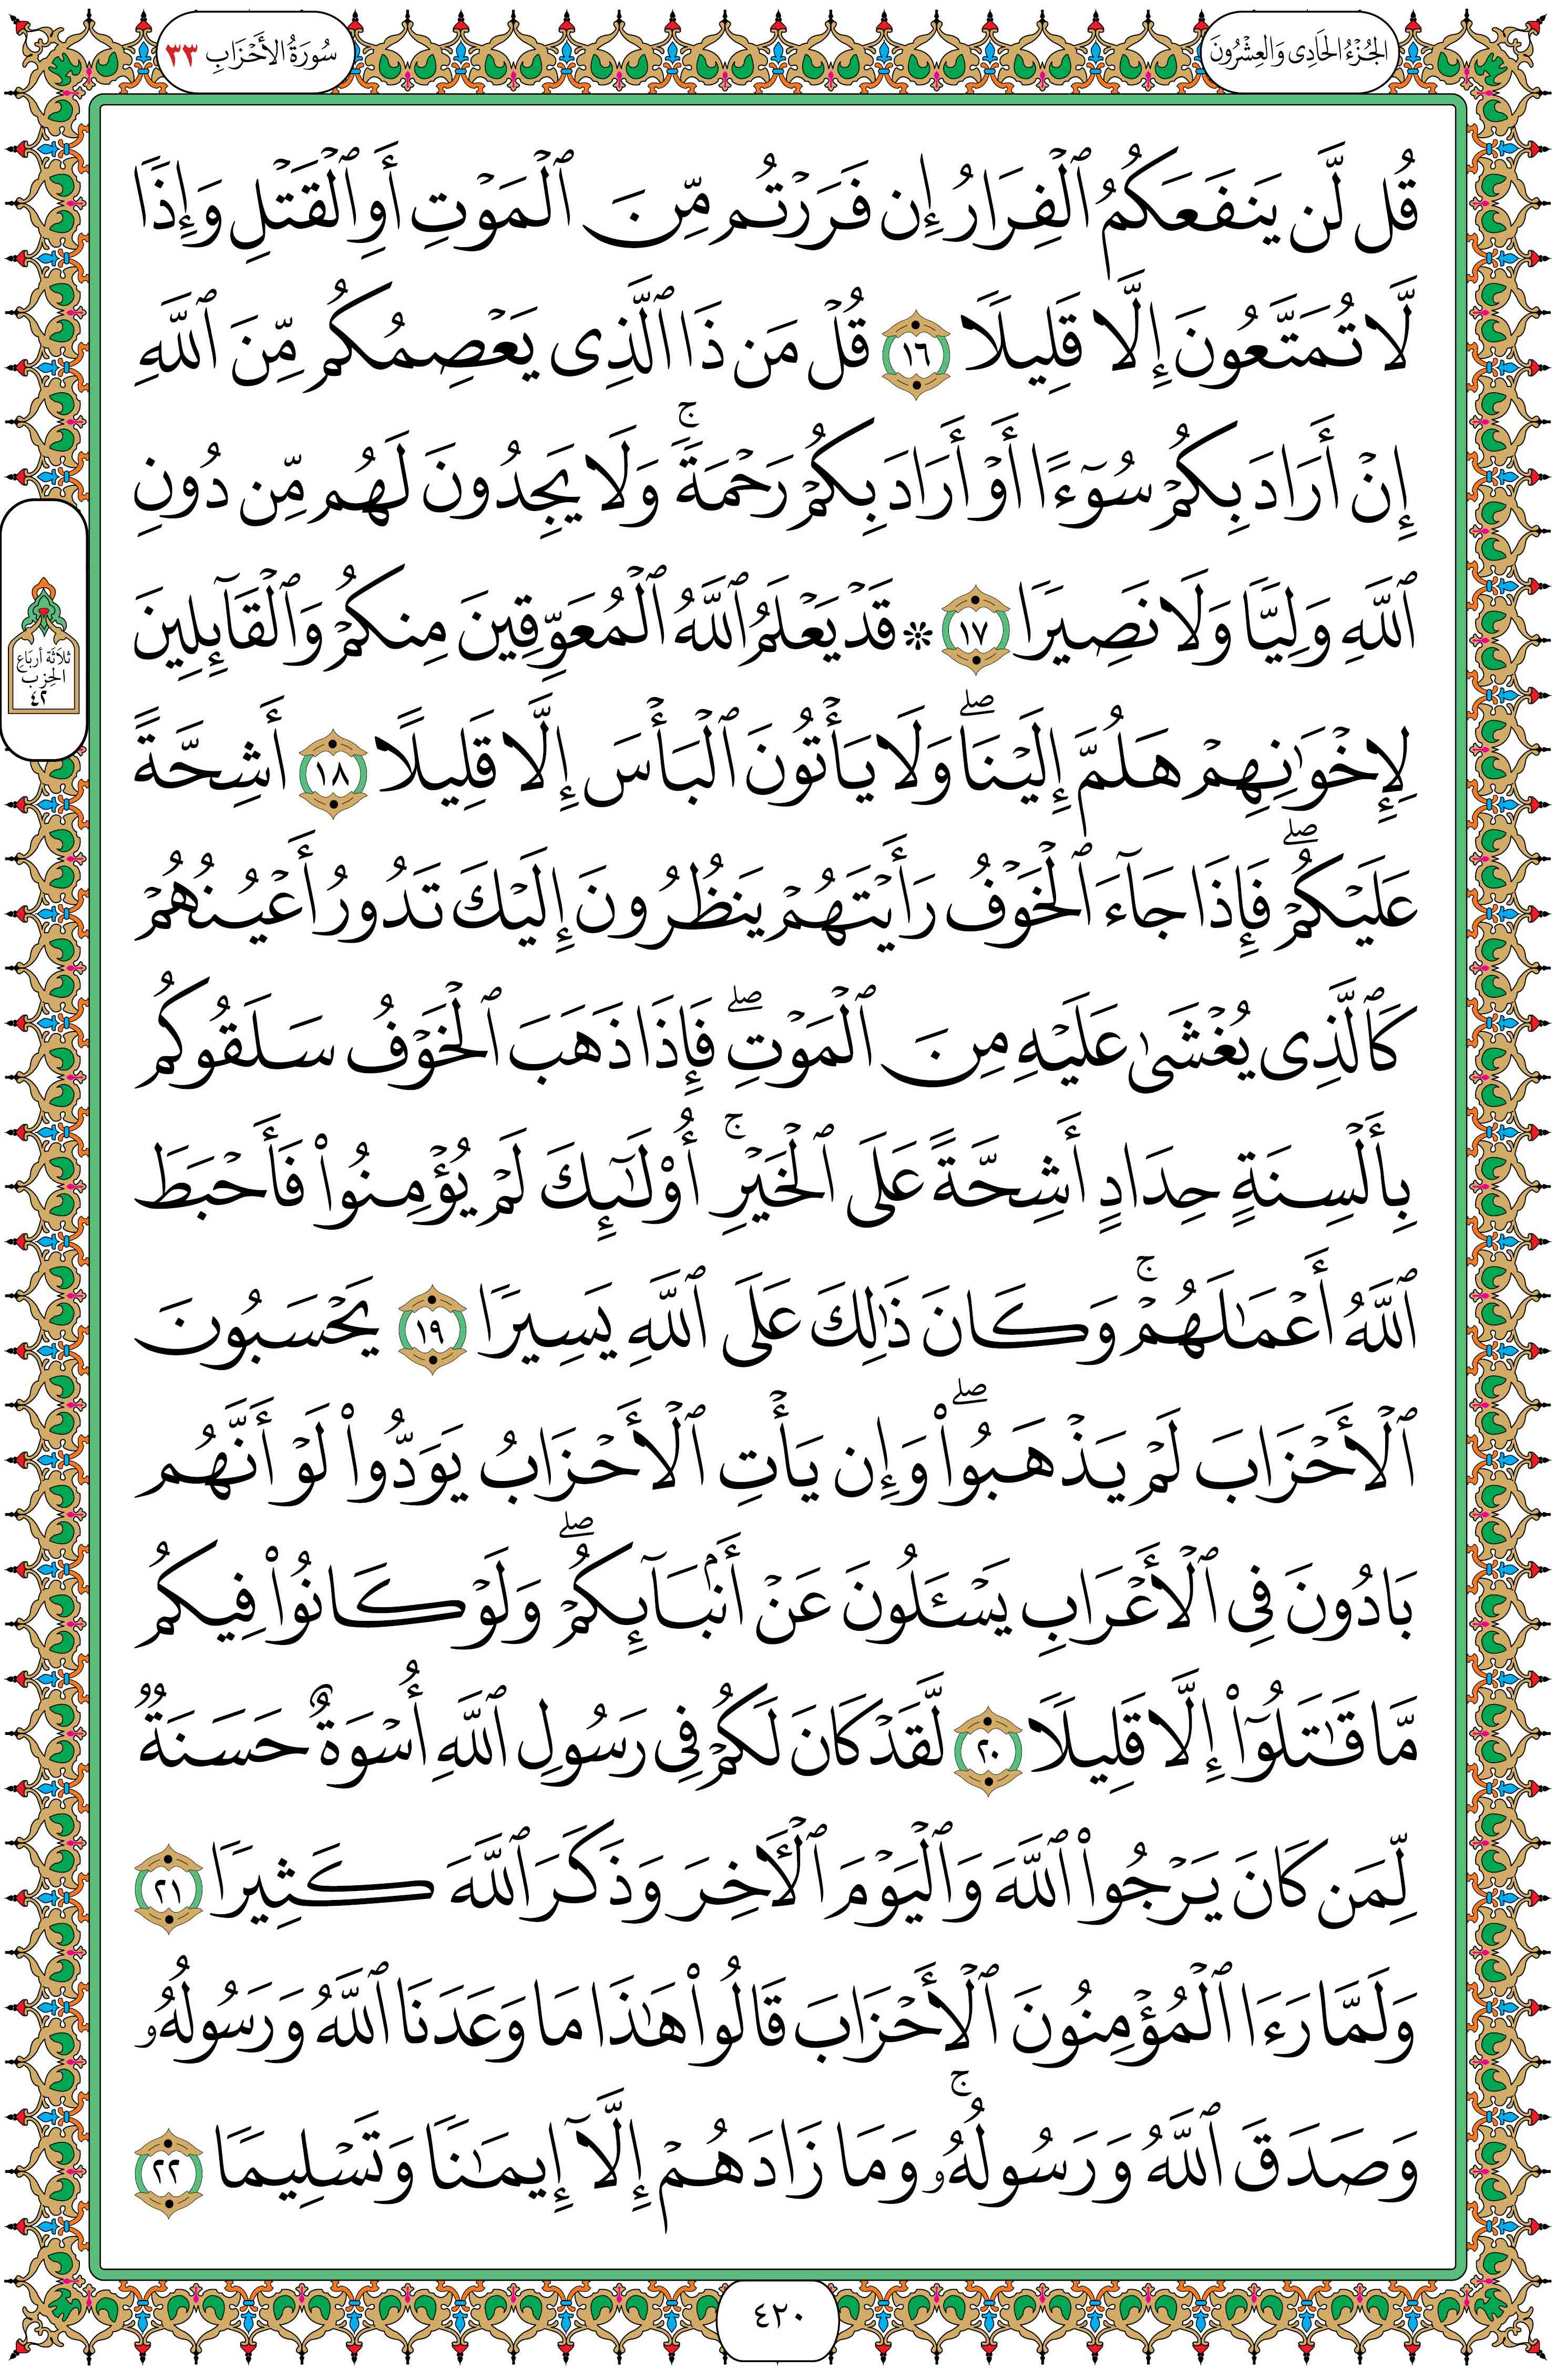 الجُزْءُ الحَادِي وَالعِشْرُونَ
سُورَةُ الأَحْزَابِ ٣٣
قُل لَّن يَنفَعَكُمُ ٱلْفِرَارُ إِن فَرَرْتُم مِّنَ ٱلْمَوْتِ أَوِ ٱلْقَتْلِ وَإِذًا
لَّا تُمَتَّعُونَ إِلَّا قَلِيلًا ١٦ قُلْ مَن ذَا ٱلَّذِى يَعْصِمُكُم مِّنَ ٱللَّهِ
إِنْ أَرَادَ بِكُمْ سُوٓءًا أَوْ أَرَادَ بِكُمْ رَحْمَةً ۚ وَلَا يَجِدُونَ لَهُم مِّن دُونِ
ٱللَّهِ وَلِيًّا وَلَا نَصِيرًا ١٧ * قَدْ يَعْلَمُ ٱللَّهُ ٱلْمُعَوِّقِينَ مِنكُمْ وَٱلْقَآئِلِينَ
لِإِخْوَٰنِهِمْ هَلُمَّ إِلَيْنَا ۖ وَلَا يَأْتُونَ ٱلْبَأْسَ إِلَّا قَلِيلًا ١٨ أَشِحَّةً
عَلَيْكُمْ ۖ فَإِذَا جَآءَ ٱلْخَوْفُ رَأَيْتَهُمْ يَنظُرُونَ إِلَيْكَ تَدُورُ أَعْيُنُهُمْ
كَٱلَّذِى يُغْشَىٰ عَلَيْهِ مِنَ ٱلْمَوْتِ ۖ فَإِذَا ذَهَبَ ٱلْخَوْفُ سَلَقُوكُم
بِأَلْسِنَةٍ حِدَادٍ أَشِحَّةً عَلَى ٱلْخَيْرِ ۚ أُو۟لَٰٓئِكَ لَمْ يُؤْمِنُوا۟ فَأَحْبَطَ
ٱللَّهُ أَعْمَٰلَهُمْ ۚ وَكَانَ ذَٰلِكَ عَلَى ٱللَّهِ يَسِيرًا ١٩ يَحْسَبُونَ
ٱلْأَحْزَابَ لَمْ يَذْهَبُوا۟ ۖ وَإِن يَأْتِ ٱلْأَحْزَابُ يَوَدُّوا۟ لَوْ أَنَّهُم
بَادُونَ فِى ٱلْأَعْرَابِ يَسْـَٔلُونَ عَنْ أَنۢبَآئِكُمْ ۖ وَلَوْ كَانُوا۟ فِيكُم
مَّا قَٰتَلُوٓا۟ إِلَّا قَلِيلًا ٢٠ لَّقَدْ كَانَ لَكُمْ فِى رَسُولِ ٱللَّهِ أُسْوَةٌ حَسَنَةٌ
لِّمَن كَانَ يَرْجُوا۟ ٱللَّهَ وَٱلْيَوْمَ ٱلْـَٔاخِرَ وَذَكَرَ ٱللَّهَ كَثِيرًا ٢١
وَلَمَّا رَءَا ٱلْمُؤْمِنُونَ ٱلْأَحْزَابَ قَالُوا۟ هَٰذَا مَا وَعَدَنَا ٱللَّهُ وَرَسُولُهُۥ
وَصَدَقَ ٱللَّهُ وَرَسُولُهُۥ ۚ وَمَا زَادَهُمْ إِلَّآ إِيمَٰنًا وَتَسْلِيمًا ٢٢
ثلاثة أرباع
الحزب
٤٢
٤٢٠